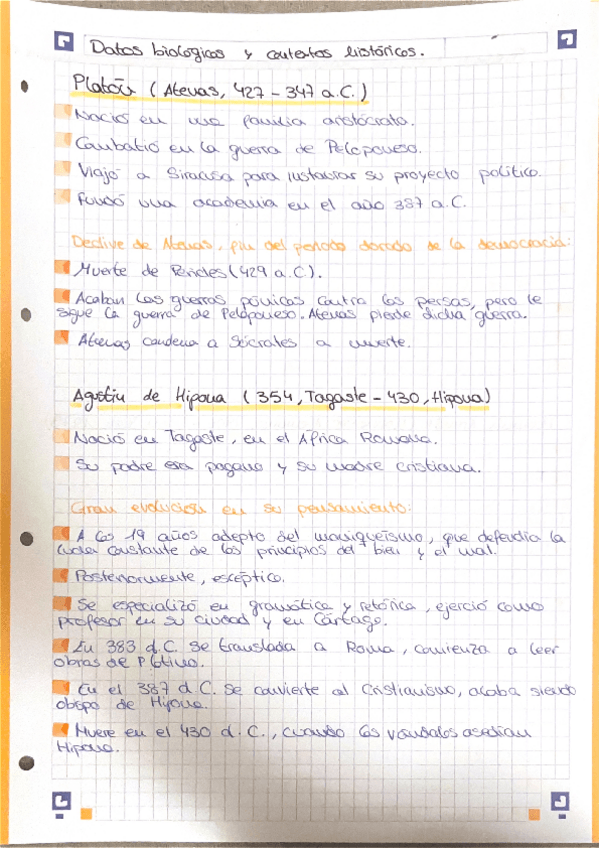 Datos biológicos y contextos históricos.
Platón (Atenas, 427 - 347 a.C.)
Nació en una familia aristócrata.
Combatió en la guerra de Peloponeso.
Viajó a Siracusa para instaurar su proyecto político.
Fundó una academia en el año 387 a.C.
Declive de Atenas, fin del periodo dorado de la democracia:
Muerte de Pericles (429 a.C.).
Acaban las guerras púnicas contra los persas, pero le
sigue la guerra de Peloponeso. Atenas pierde dicha guerra.
Atenas condena a Sócrates a muerte.
Agustín de Hipona (354, Tagaste - 430, Hipona)
Nació en Tagaste, en el África Romana.
Su padre era pagano y su madre cristiana.
Gran evolución en su pensamiento:
A los 19 años adepto del maniqueísmo, que defendía la
lucha constante de los principios del bien y el mal.
Posteriormente, escéptico.
Se especializó en gramática y retórica, ejerció como
profesor en su ciudad y en Cartago.
En 383 d.C. se translada a Roma, comienza a leer
obras de Plotino.
En el 387 d.C. se convierte al Cristianismo, acaba siendo
obispo de Hipona.
Muere en el 430 d.C., cuando los vándalos asedian
Hipona.